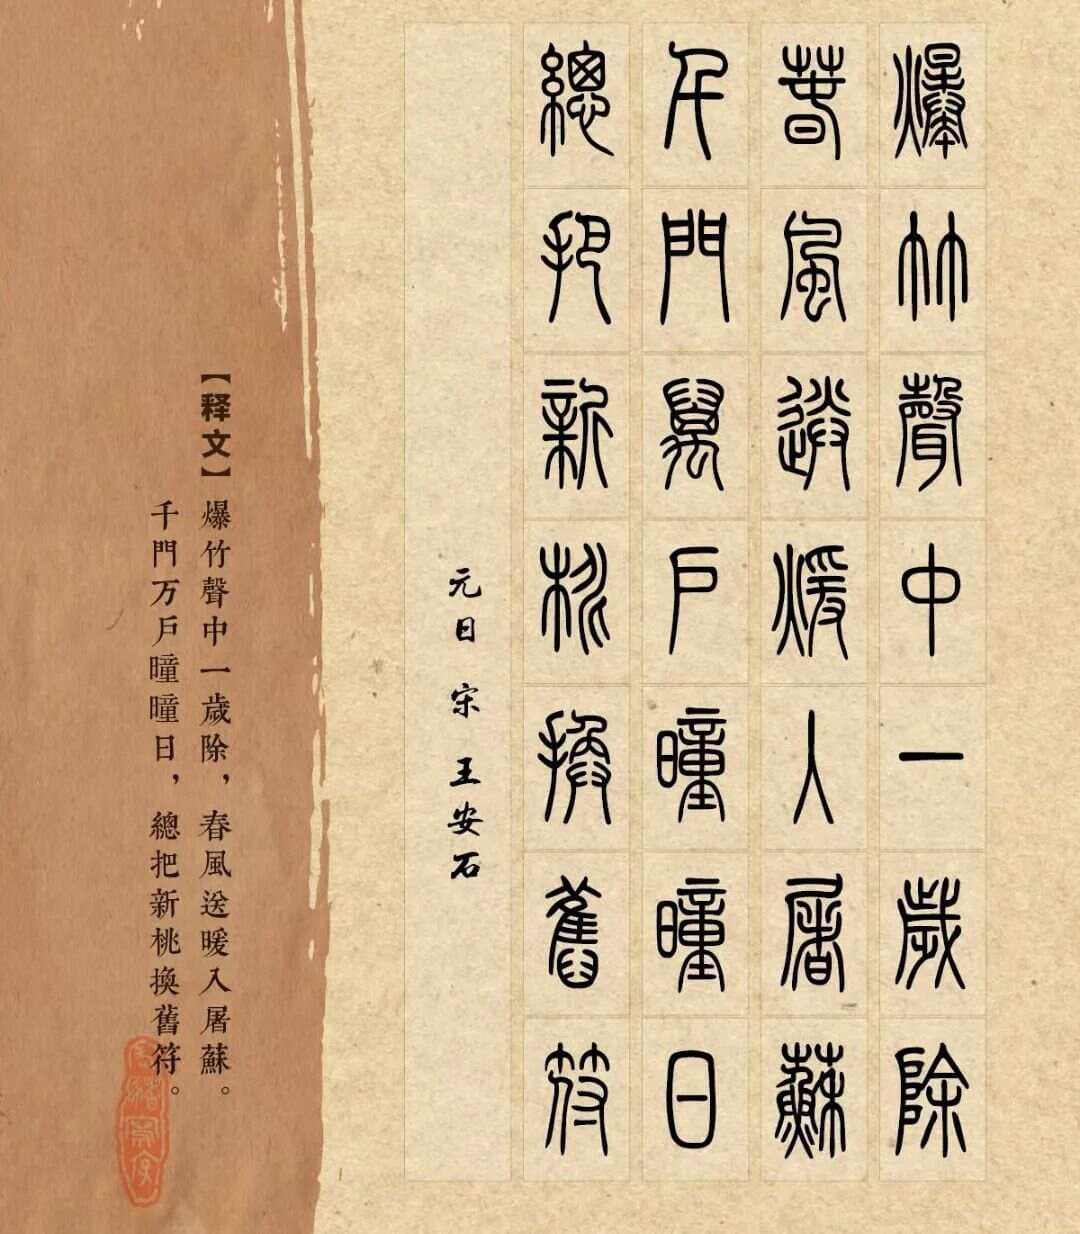 爆竹聲中一歲除
春風送暖入屠蘇
千門萬戶曈曈日
總把新桃換舊符
元日 宋 王安石
【释文】爆竹聲中一歲除，春風送暖入屠蘇。
千門万戶曈曈日，總把新桃換舊符。